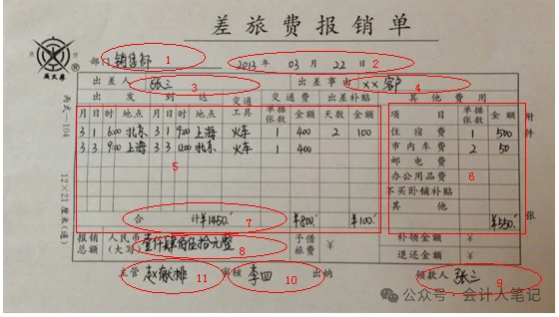 差旅费报销单
部门 销售部 1 2013年 03月 22日 2
成文厚
出差人 张三 3 出差事由 ××客户 4
出发 到达 交通工具 交通费 出差补贴 其他费用
月 日 时 地点 月 日 时 地点 单据张数 金额 天数 金额 项目 单据张数 金额
3 1 6:00 北京 3 1 9:00 上海 火车 1 400 2 100 住宿费 1 500
3 3 9:00 上海 3 3 12:00 北京 火车 1 400 市内车费 2 50
邮电费
5 办公用品费 6
不买卧铺补贴
其他
合计 ¥1450 7 ¥800 ¥100 ¥550
报销总额 人民币(大写) 壹仟肆佰伍拾元整 8 予借旅费 ¥ 补领金额 ¥
退还金额 ¥
主管 11 审核 李四 10 出纳 领款人 张三 9
丙式—104
12×21厘米(通)
附件
张
公众号·会计人笔记